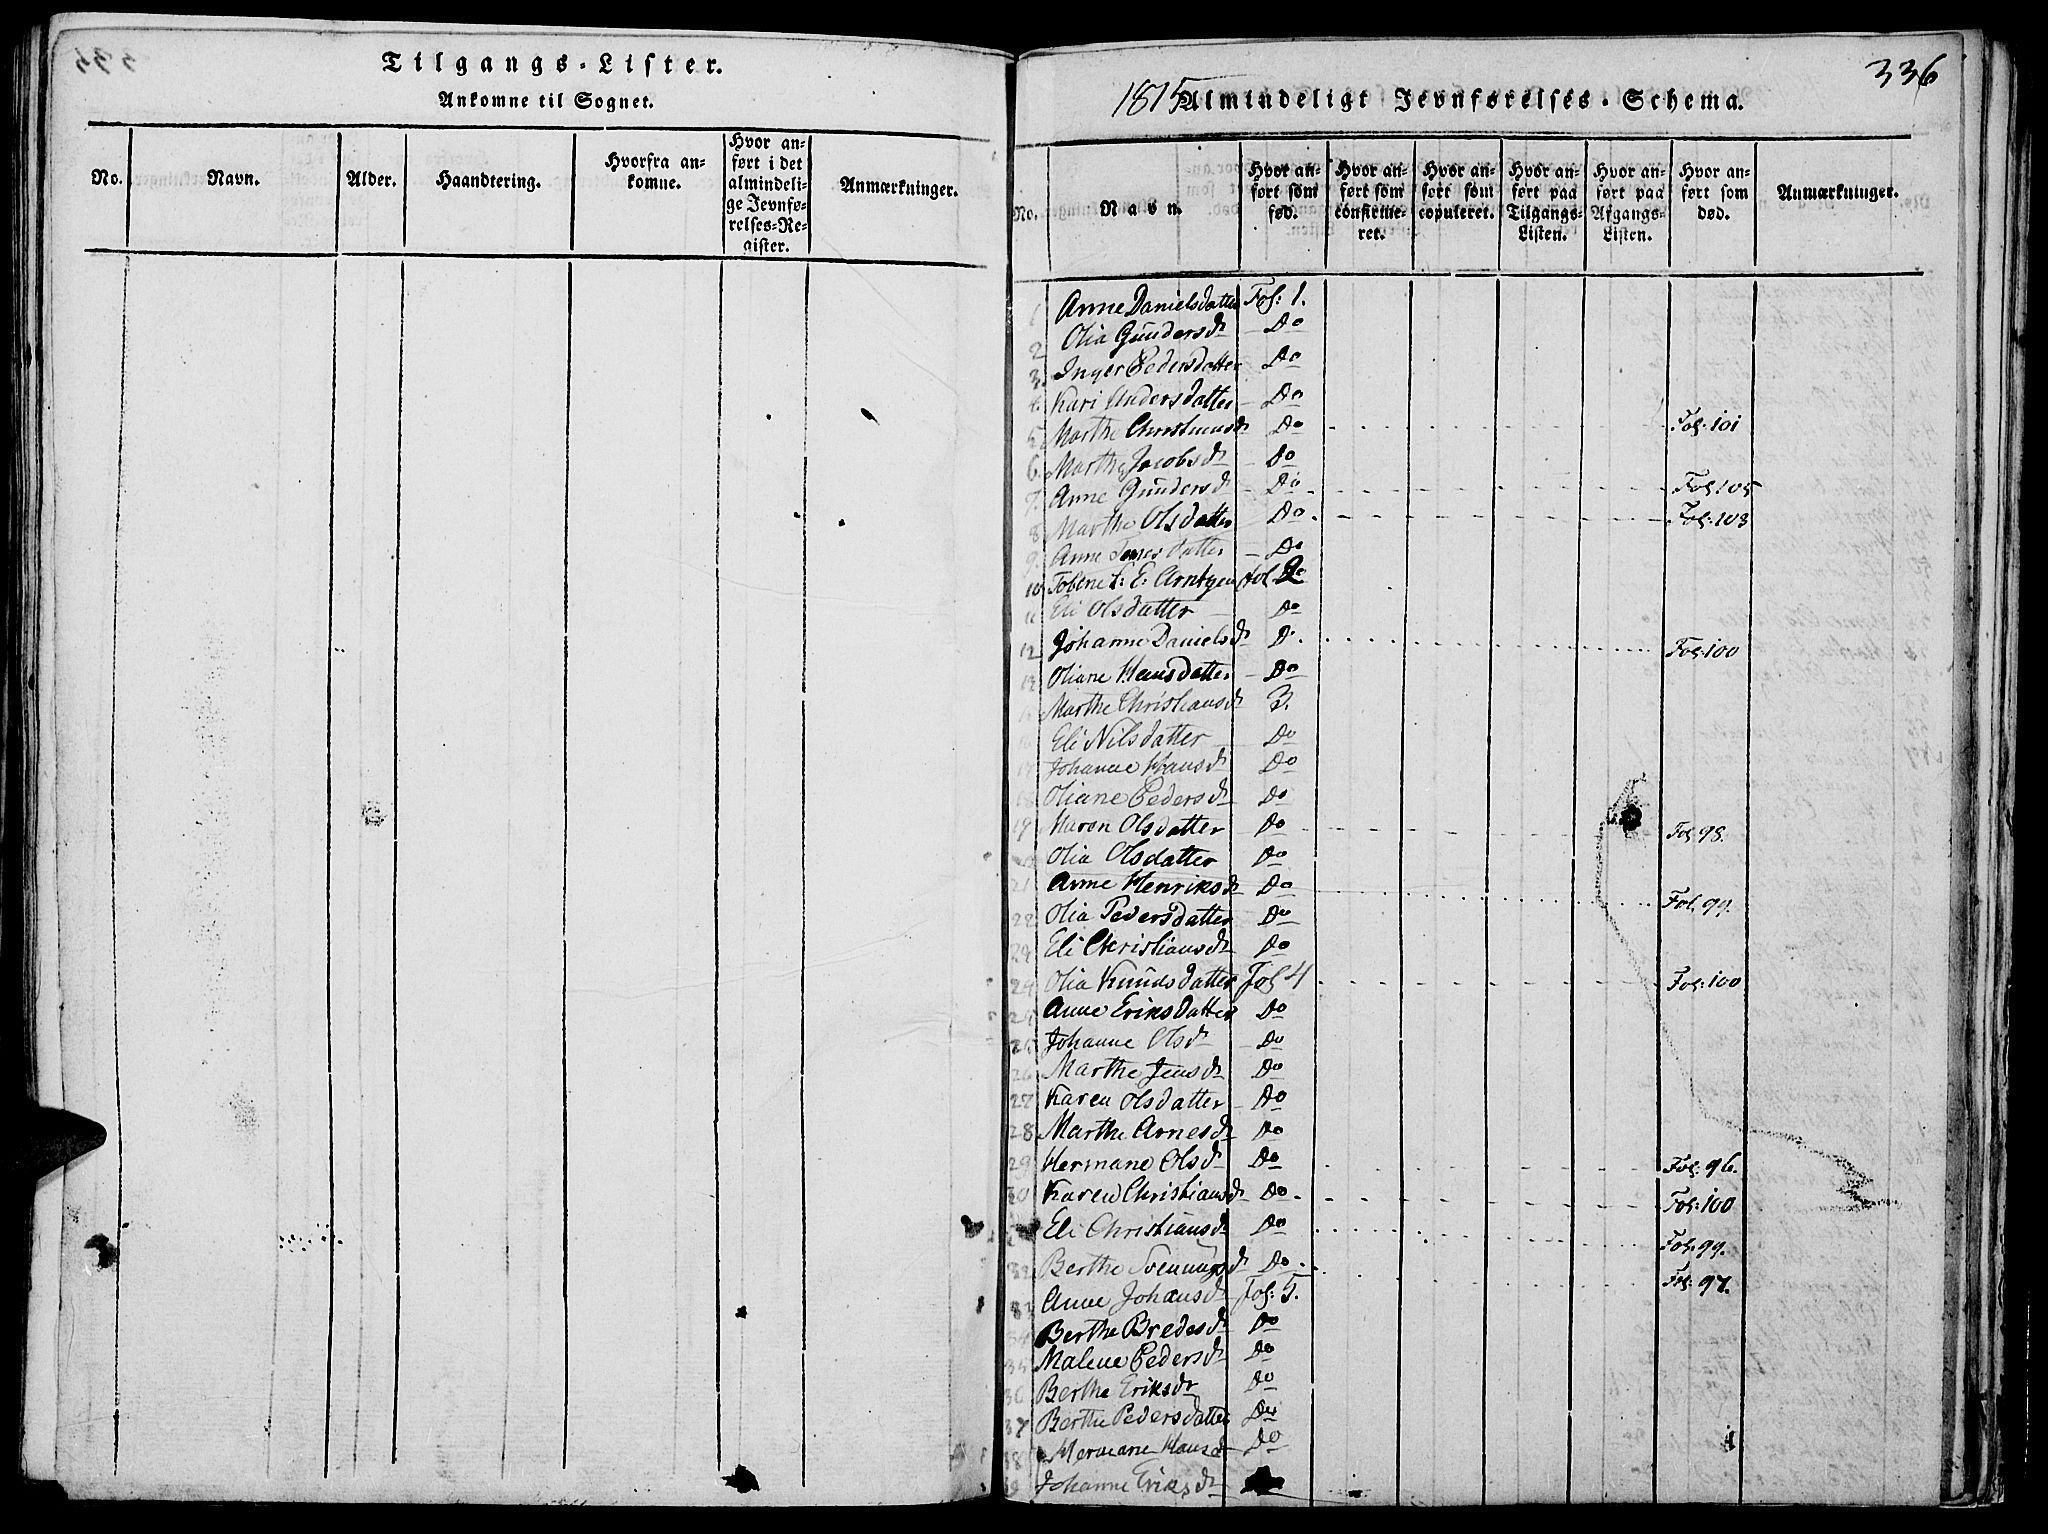 Tilgangs-Lister.
Ankomne til Sognet.
No.
Navn.
Alder.
Haandtering.
Hvorfra an-
komne.
Hvor an-
ført i det
almindeli-
ge Jevnfø-
relses-Re-
gister.
Anmærkninger.
336
1815 Almindeligt Jevnførelses-Schema.
No.
Navn.
Hvor an-
ført som
fød.
Hvor an-
ført som
confirme-
ret.
Hvor an-
ført som
copuleret.
Hvor an-
ført paa
Tilgangs-
Listen.
Hvor an-
ført paa
Afgangs-
Listen.
Hvor an-
ført som
død.
Anmærkninger.
1 Anne Danielsdatter Fol: 1.
2 Olia Gundersdr Do
3. Inger Pedersdatter Do
4. Kari Andersdatter Do
5 Marthe Christiansdr Do Fol: 101
6. Marthe Jacobsdr Do
7. Anne Gundersdr Do Fol: 105
8 Marthe Olsdatter Do Fol: 103
9. Anne datter Do
10 Fol 2
11 Eli Olsdatter Do
12 Johanne Danielsdr Do Fol: 100
13 Oliane Hansdatter Do
Marthe Christiansdr 3.
Eli Nilsdatter Do
17 Johanne Hansdr Do
18 Oliane Pedersdr Do
19 Maren Olsdatter Do Fol 98.
Olia Olsdatter Do
21 Anne Henriksdr Do Fol. 99.
22 Olia Pedersdatter Do
23 Eli Christiansdr Do
24 Olia Knudsdatter Fol 4 Fol: 100
Anne Eriksdatter Do
25 Johanne Olsdr Do
26 Marthe Jensdr Do
27 Karen Olsdatter Do
28 Marthe Arnesdr Do
29 Hermane Olsdr Do Fol: 96.
30 Karen Christiansdr Do Fol: 100
Eli Christiansdr Do Fol. 99.
32 Berthe Svenningsdr Do Fol: 97.
33 Anne Johansdr Fol: 5.
34 Berthe Bredesdr Do
35 Malene Pedersdr Do
36 Berthe Eriksdr Do
37 Berthe Pedersdatter Do
38 Hermane Hansdr Do
39 Johanne Eriksdr